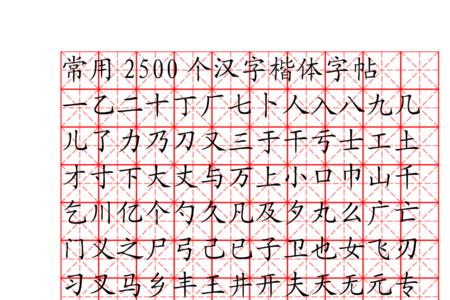 常用 2500 个汉字楷体字帖
一乙二十丁厂七卜人入八九几
儿了力乃刀又三于干亏士工土
才寸下大丈与万上小口巾山千
乞川亿个勺久凡及夕丸么广亡
门义之尸弓己已子卫也女飞刃
习叉马乡丰王井开夫天无元专